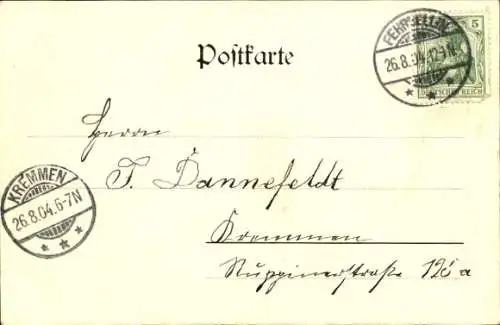 Postkarte
FEHRBELLIN
26.8.04.12-1N.
5
DEUTSCHES REICH
Herrn
F. Dannefeldt
Kremmen
Ruppinerstraße 126 a
KREMMEN
26.8.04.6-7N